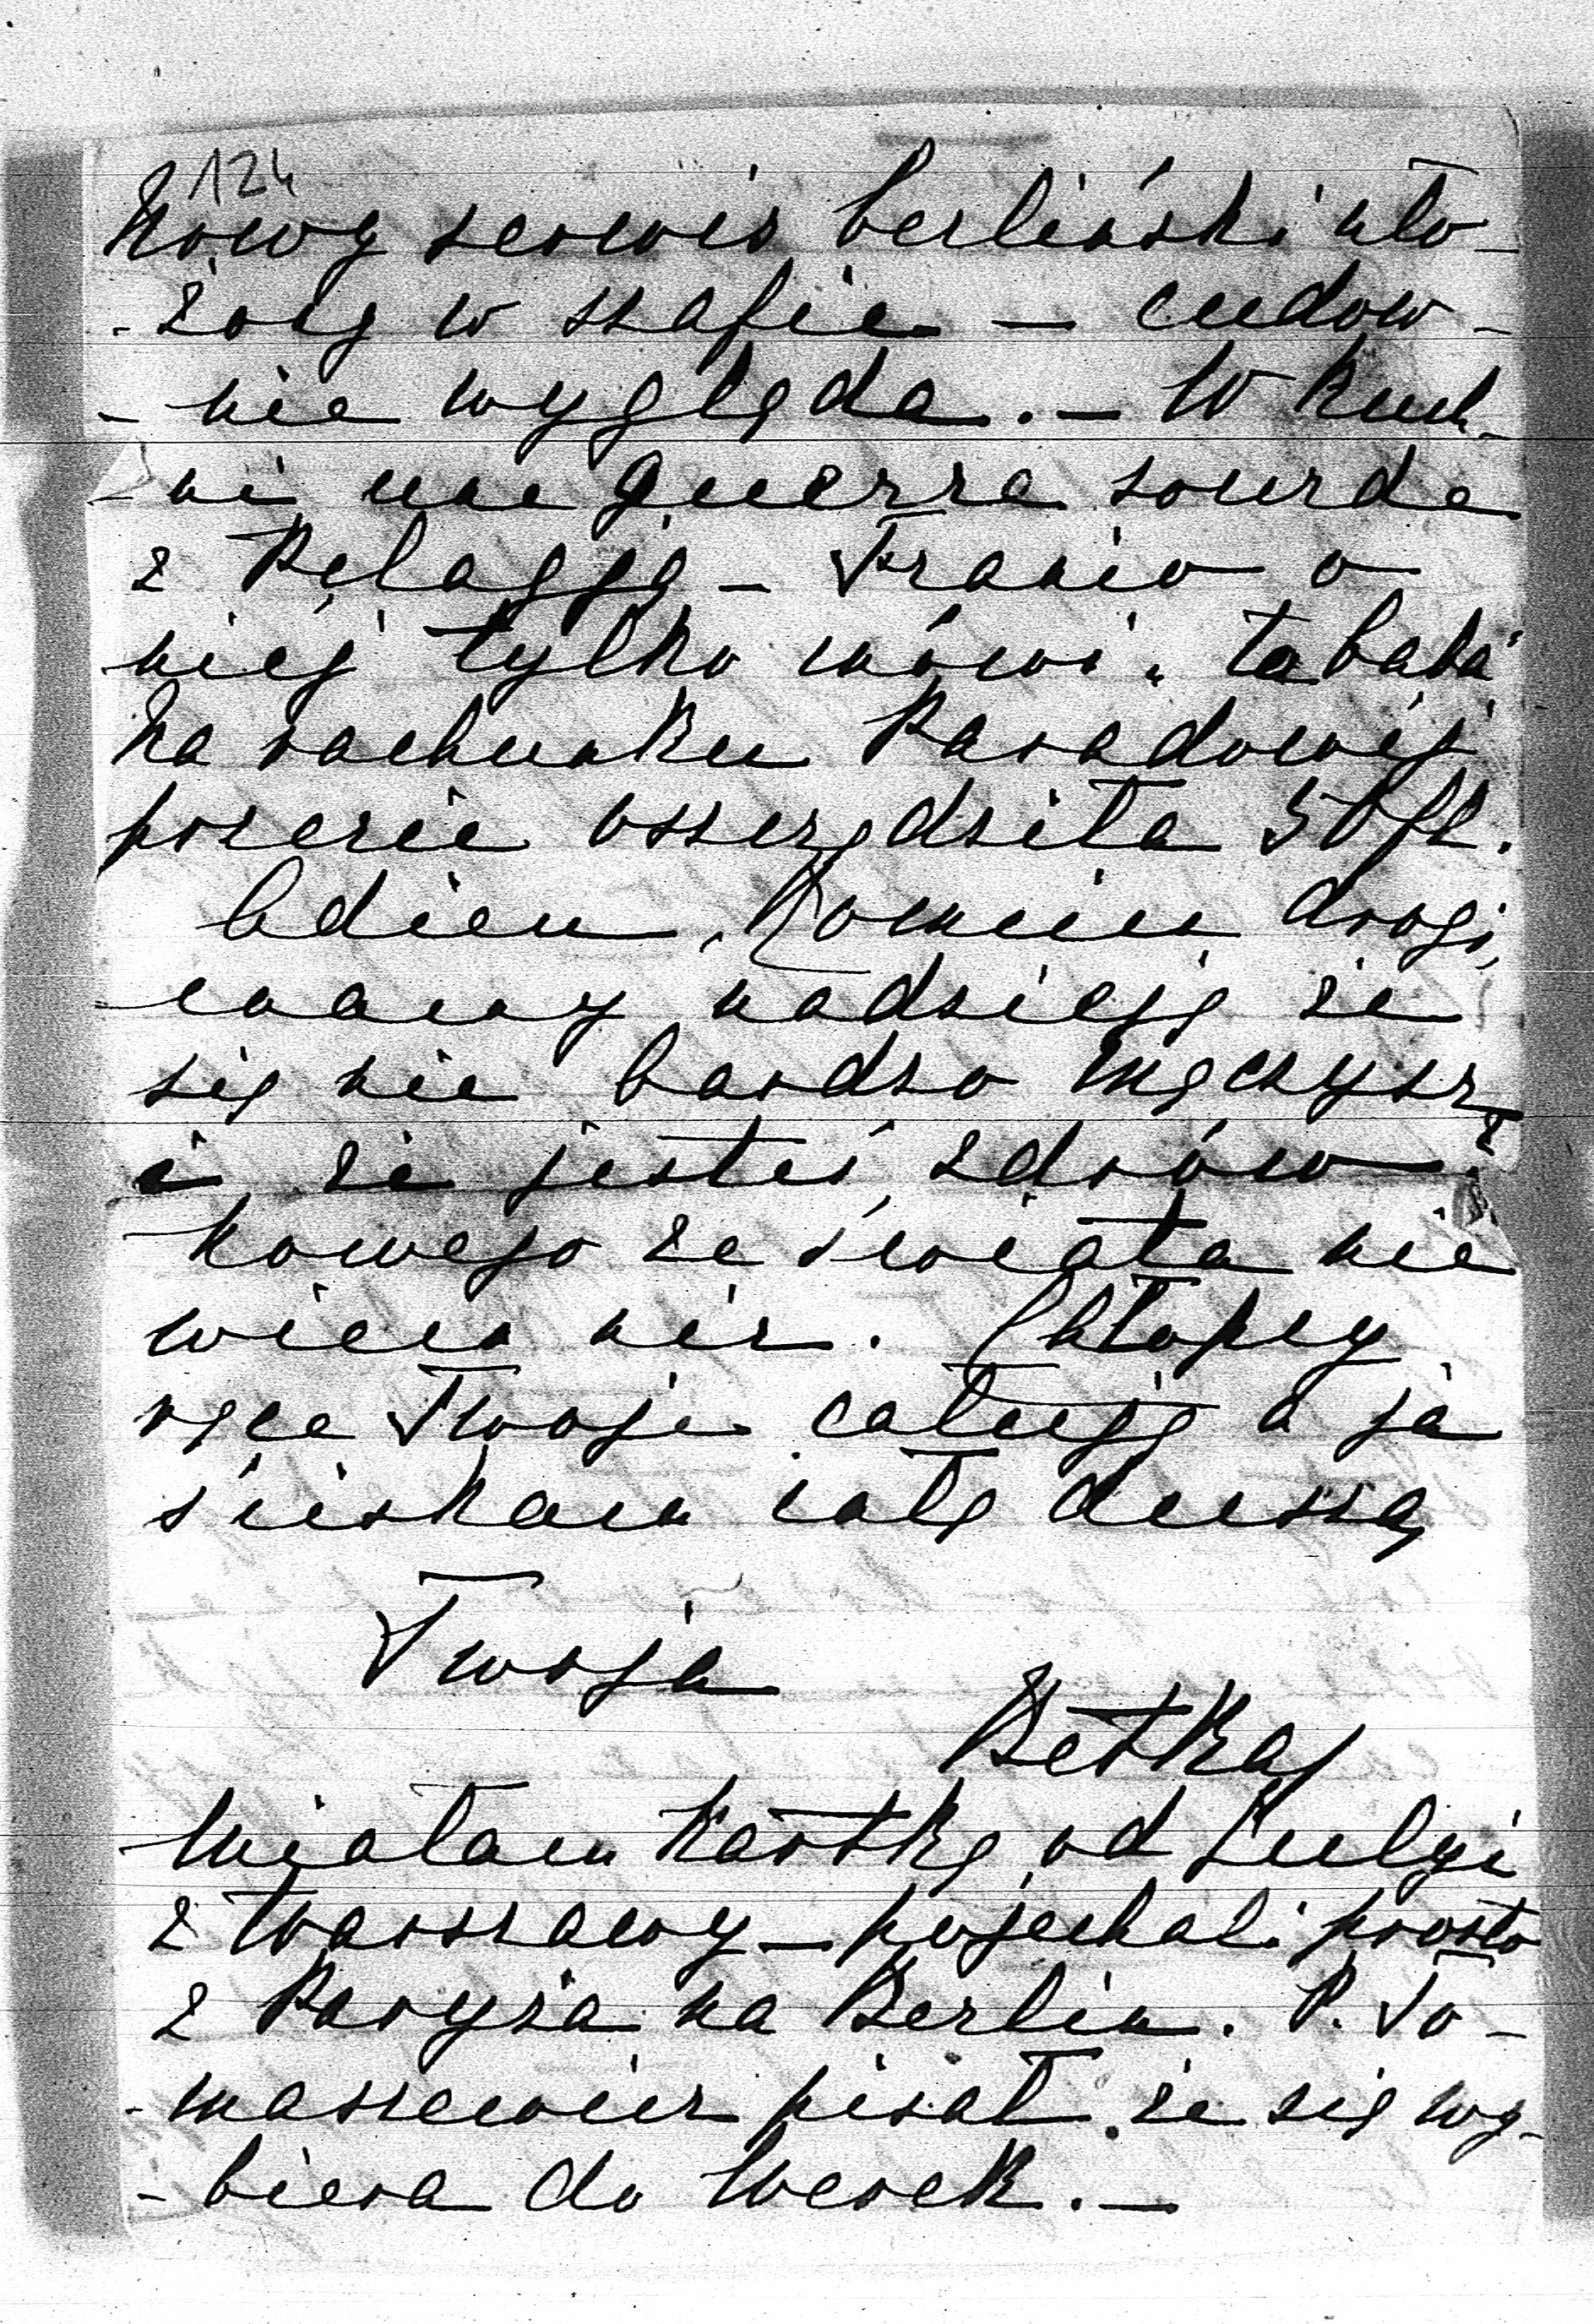 124
Nowy serwis berliński uło-
-żony w szafie — cudow-
-nie wygląda. — W kuch-
-ni une guerre sourde
z Pelagją — Franio o
niej tylko mówi „ta baba"
Na rachunku
poszcie oszczędziła 50 fl.
Adieu, drogi,
mamy nadzieję że
się nie bardzo męczysz
i że jesteś zdrów?
Nowego ze świata nie
wiem nic. Chłopcy
ręce Twoje całują a ja
ściskam całą duszą
Twoja
Betka
Miałam kartkę od
z Warszawy — pojechali prosto
z Paryża na Berlin. P. To-
-maszewicz pisał że się wy-
-biera do Werek. —